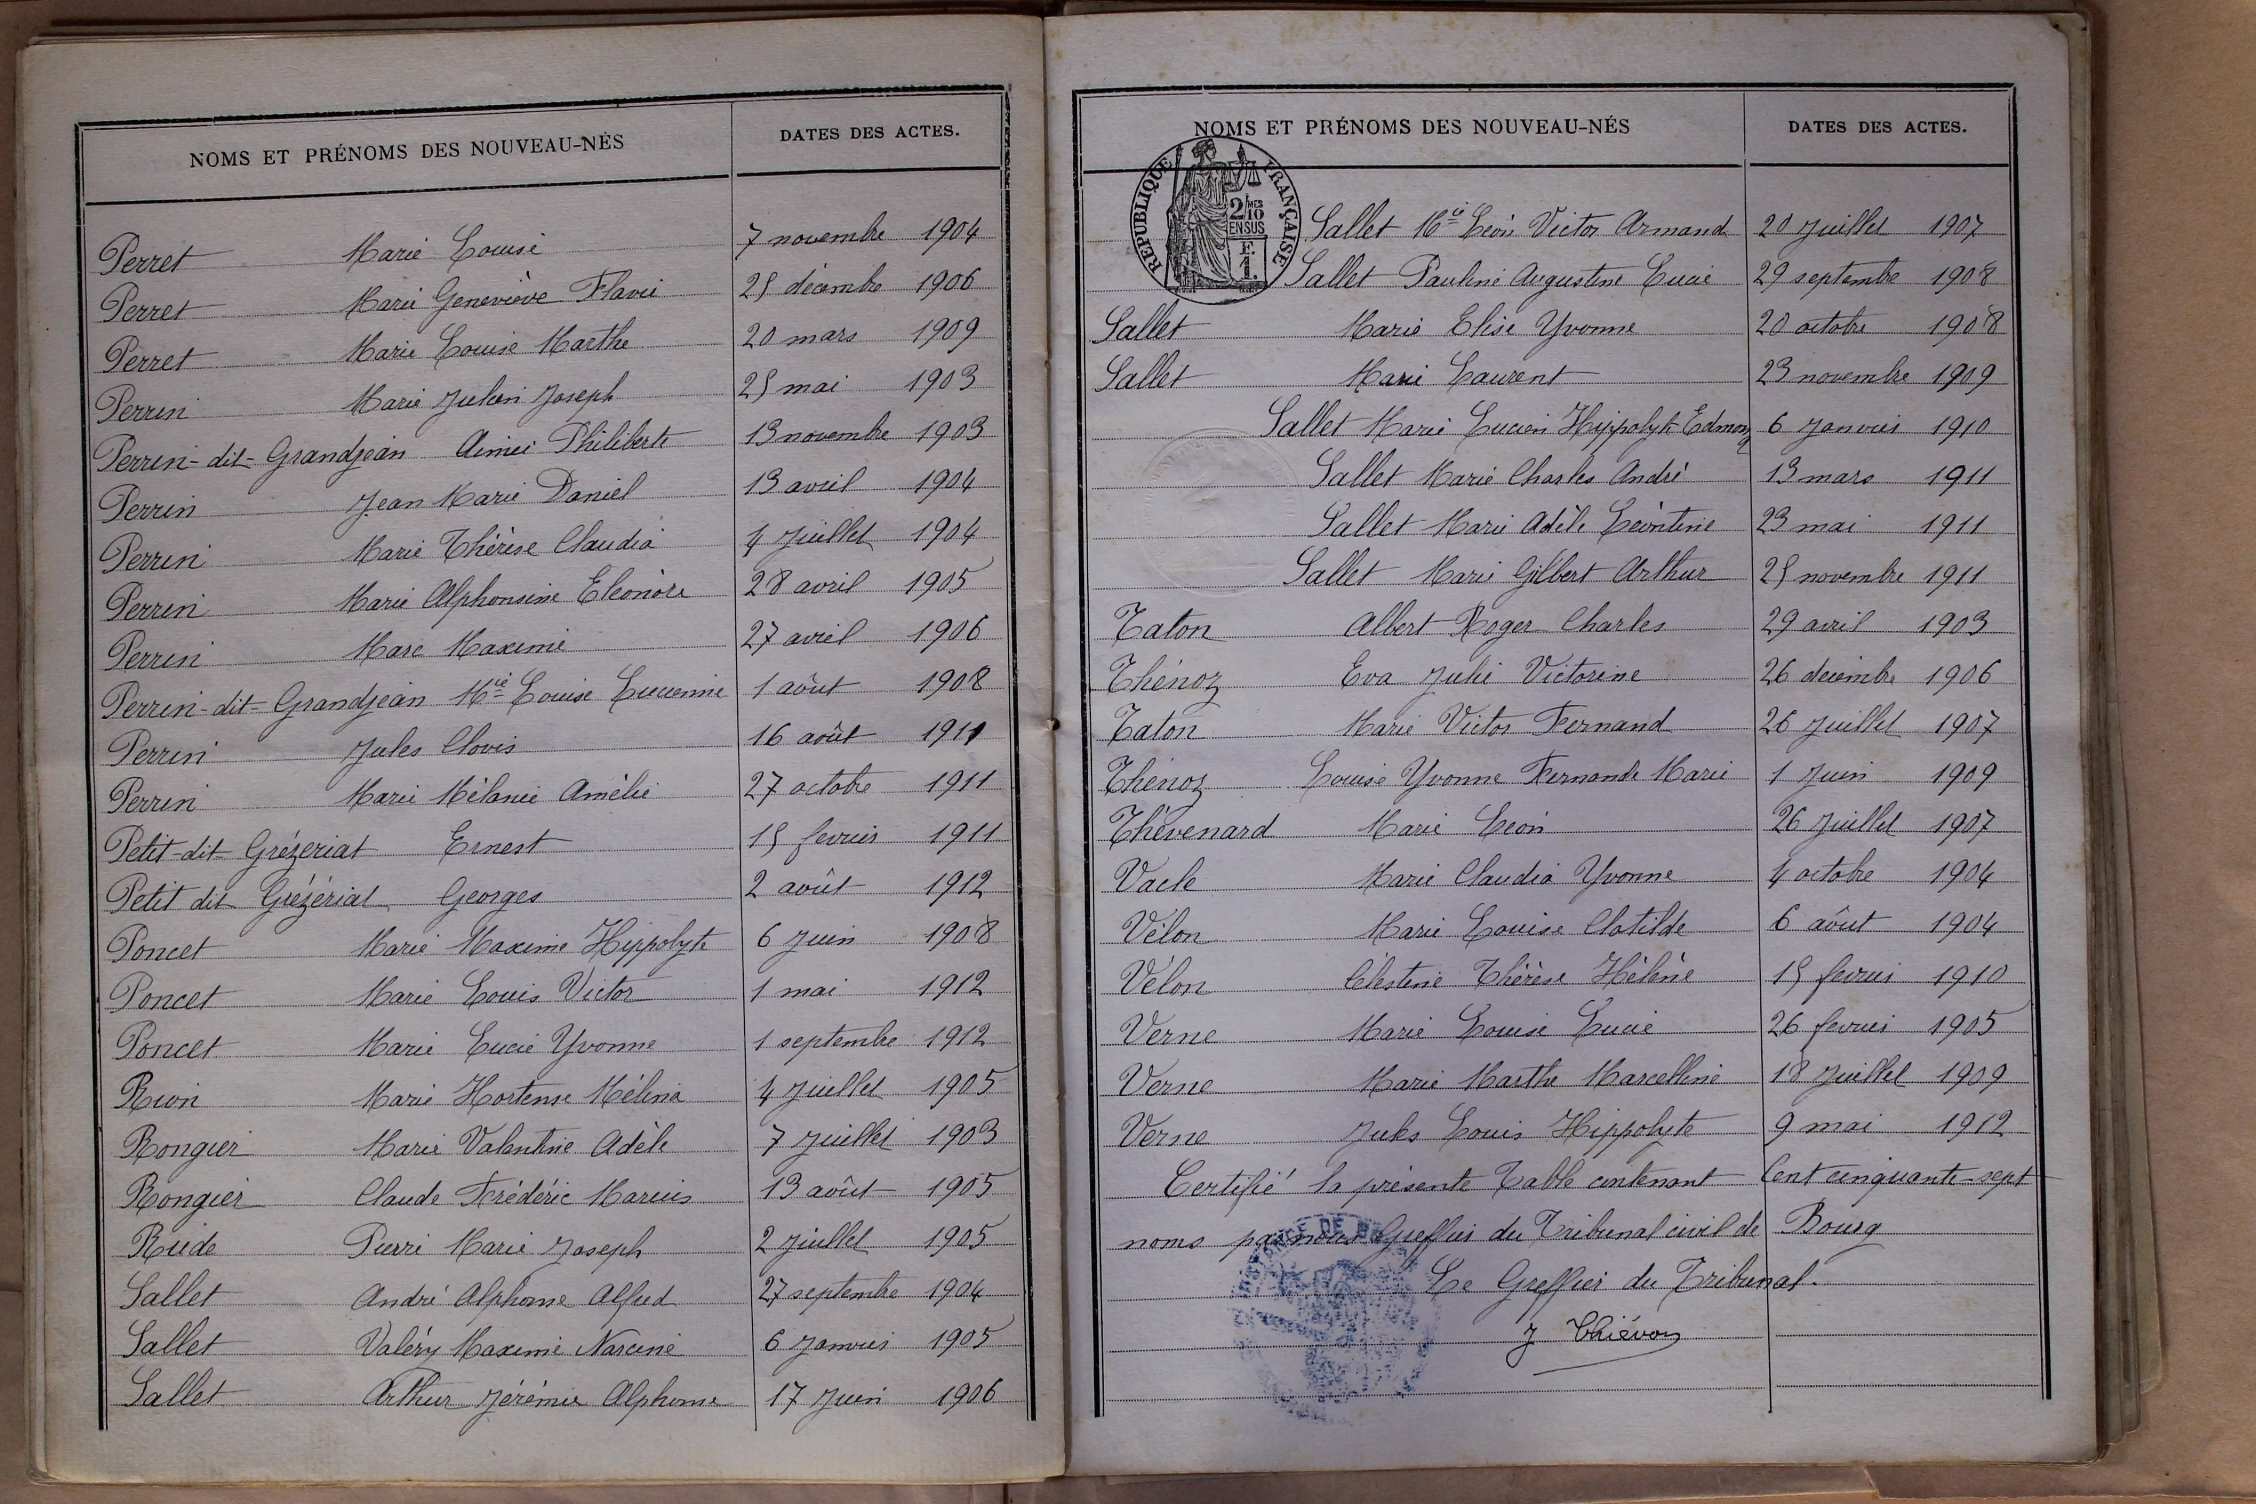 NOMS ET PRÉNOMS DES NOUVEAU-NÉS DATES DES ACTES.
Perret Marie Louise 7 novembre 1904
Perret Marie Geneviève Flavie 25 décembre 1906
Perret Marie Louise Marthe 20 mars 1909
Perrin Marie Julien Joseph 25 mai 1903
Perrin-dit-Grandjean Aimée Philiberte 13 novembre 1903
Perrin Jean Marie Daniel 13 avril 1904
Perrin Marie Thérèse Claudia 4 Juillet 1904
Perrin Marie Alphonsine Eléonore 28 avril 1905
Perrin Marc Maxime 27 avril 1906
Perrin-dit-Grandjean Mie Louise Lucienne 1 août 1908
Perrin Jules Clovis 16 août 1911
Perrin Marie Mélanie Amélie 27 octobre 1911
Petit-dit-Grézériat Ernest 15 fevrier 1911
Petit dit Grézériat Georges 2 août 1912
Poncet Marie Maxime Hippolyte 6 Juin 1908
Poncet Marie Louis Victor 1 mai 1912
Poncet Marie Lucie Yvonne 1 septembre 1912
Rion Marie Hortense Mélina 4 Juillet 1905
Rongier Marie Valentine Adèle 7 Juillet 1903
Rongier Claude Frédéric Marius 13 août 1905
Rude Pierre Marie Joseph 2 Juillet 1905
Sallet André Alphonse Alfred 27 septembre 1904
Sallet Valéry Maxime Narcisse 6 Janvier 1905
Sallet Arthur Jérémie Alphonse 17 Juin 1906
NOMS ET PRÉNOMS DES NOUVEAU-NÉS DATES DES ACTES.
RÉPUBLIQUE FRANÇAISE
2/10 MES
EN SUS
F.
1.
Sallet Mie Léon Victor Armand 20 Juillet 1907
Sallet Pauline Augustine Lucie 29 septembre 1908
Sallet Marie Elise Yvonne 20 octobre 1908
Sallet Marie Laurent 23 novembre 1909
Sallet Marie Lucien Hippolyte Edmond 6 Janvier 1910
Sallet Marie Charles André 13 mars 1911
Sallet Marie Adèle Léontine 23 mai 1911
Sallet Marie Gilbert Arthur 25 novembre 1911
Taton Albert Roger Charles 29 avril 1903
Thénoz Eva Julie Victorine 26 décembre 1906
Taton Marie Victor Fernand 26 Juillet 1907
Thénoz Louise Yvonne Fernande Marie 1 Juin 1909
Thévenard Marie Léon 26 Juillet 1907
Vacle Marie Claudia Yvonne 4 octobre 1904
Vélon Marie Louise Clotilde 6 août 1904
Vélon Célestine Thérèse Hélène 15 fevrier 1910
Verne Marie Louise Lucie 26 fevrier 1905
Verne Marie Marthe Marcelline 18 Juillet 1909
Verne Jules Louis Hippolyte 9 mai 1912
Certifié la présente Table contenant Cent cinquante-sept
noms par nous Greffier du Tribunal civil de Bourg
Le Greffier du Tribunal.